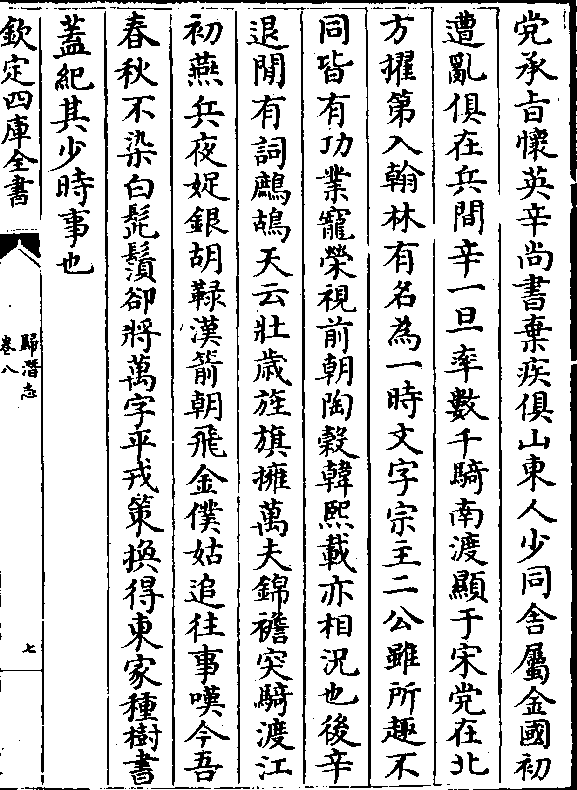 党承旨懷英辛尚書棄疾俱山東人少同舍屬金國初
遭亂俱在兵間辛一旦率數千騎南渡顯于宋党在北
方擢第入翰林有名為一時文字宗主二公雖所趣不
同皆有功業寵榮視前朝陶穀韓熙載亦相況也後辛
退閒有詞鷓鴣天云壯歲旌旗擁萬夫錦襜突騎渡江
初燕兵夜娖銀胡䩮漢箭朝飛金僕姑追往事嘆今吾
春秋不染白髭鬚卻將萬字平戎策換得東家種樹書
蓋紀其少時事也
欽定四庫全書
歸潛志
卷八
七